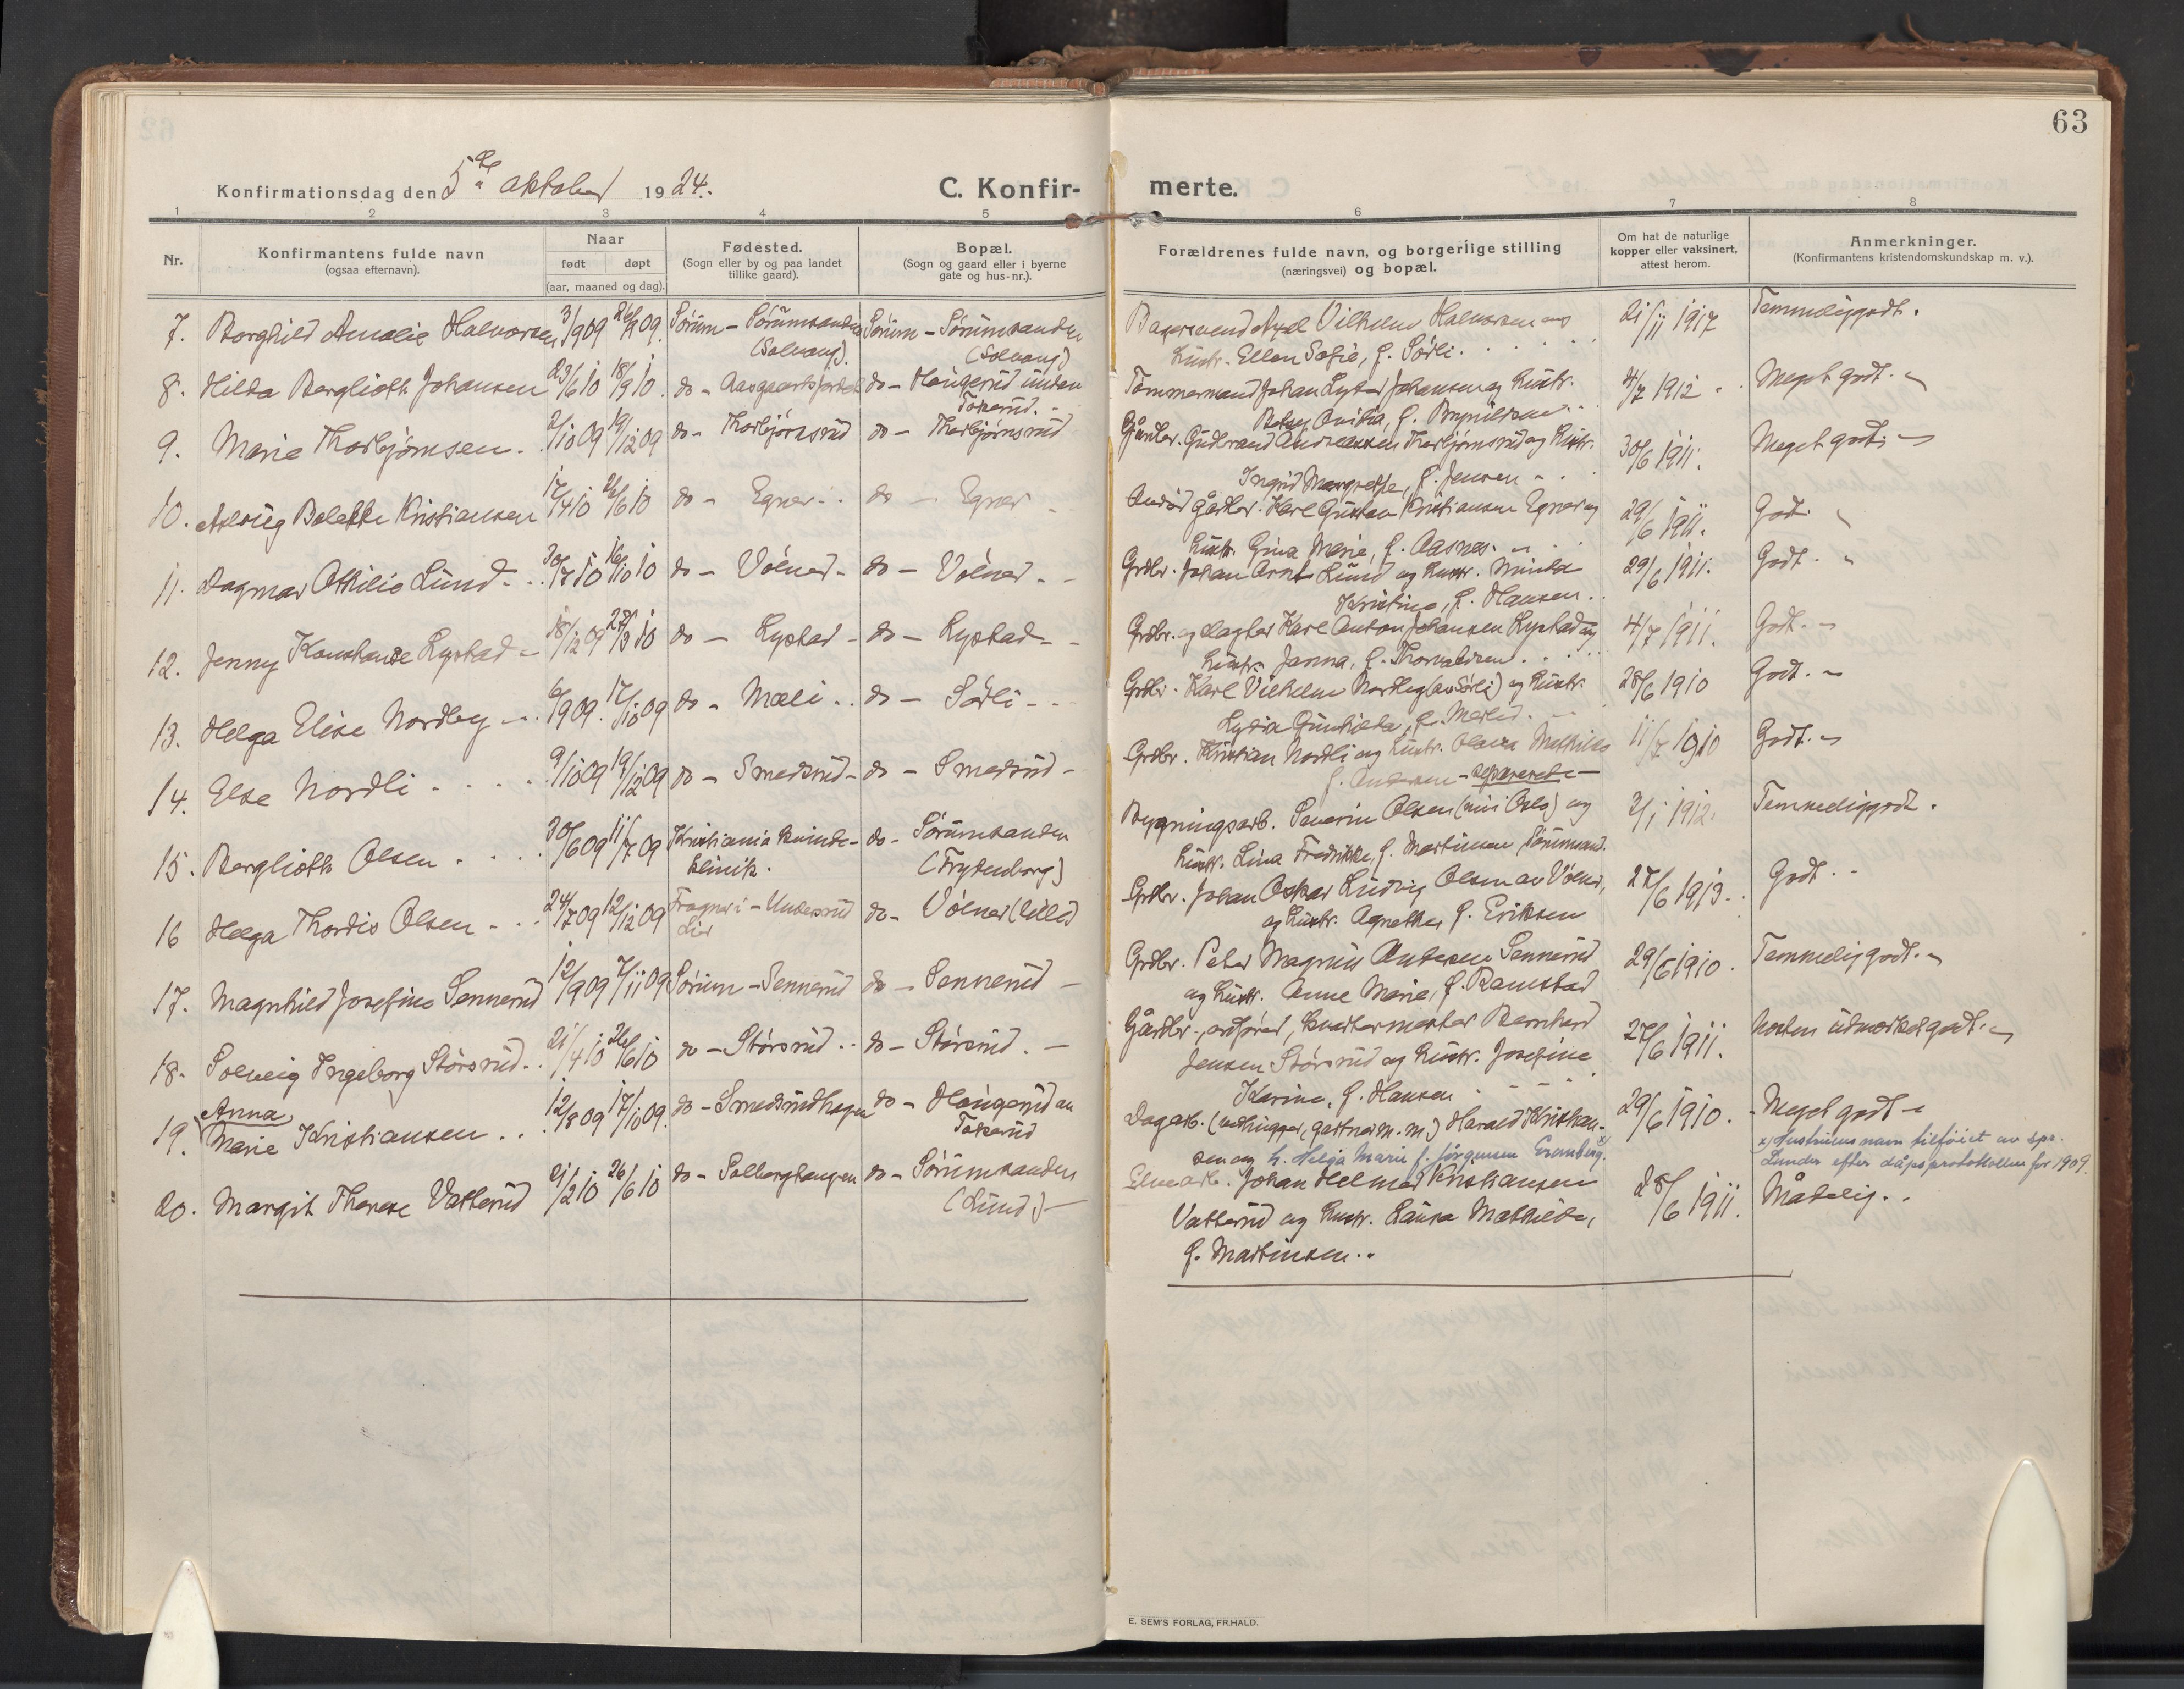 63
Konfirmationsdag den 5te oktober 1924.
C. Konfirmerte.
1 2 3 4 5 6 7 8
Nr.
Konfirmantens fulde navn
(ogsaa efternavn).
Naar
født døpt
(aar, maaned og dag).
Fødested.
(Sogn eller by og paa landet
tillike gaard).
Bopæl.
(Sogn og gaard eller i byerne
gate og hus-nr.).
Forældrenes fulde navn, og borgerlige stilling
(næringsvei) og bopæl.
Om hat de naturlige
kopper eller vaksinert,
attest herom.
Anmerkninger.
(Konfirmantens kristendomskundskap m. v.).
7. Borghild Amalie Halvorsen 3/9 09 26/9 09. Sørum - Sørumsanden Sørum - Sørumsanden Axel Vilhelm Halvorsen og 21/11 1917 Temmelig godt.
(Solvang). (Solvang) hustr. Ellen Sofie, f. Sørli.
8. Hilda Berglioth Johansen 23/6 10 18/9 10. do - do - Haugerud under Tømmermand Johan Johansen og hustr. 4/7 1912 Meget godt.
Tokerud. -
9. Marie Thorbjørnsen. 2/10 09 19/12 09 do - Thorbjørnsrud do - Thorbjørnsrud Gårdbr. Gudbrand Andreassen Thorbjørnsrud og hustr. 30/6 1911. Meget godt.
Ingrid Margrethe, f. Jensen
10. Aslaug Bolette Kristiansen 17/4 10 26/6 10 do - Egner do - Egner Gårdbr. Karl Gustav Kristiansen Egner og 29/6 1911. Godt.
hustr. Gina Marie, f. Aasnes.
11. Dagmar Othilie Lund 30/7 10 16/10 10 do - Vølner - do - Vølner. Grdbr. Johan Arnt Lund og hustr. 29/6 1911. Godt.
Kristine, f. Hansen.
12. Jenny Konstanse Lystad 18/12 09 28/3 10 do - Lystad - do - Lystad - Grdbr. og slagter Karl Anton Johansen Lystad og 4/7 1911. Godt.
hustr. Janna, f. Thorvaldsen.
13. Helga Elise Nordby 6/9 09. 17/10 09 do - Mæli.. do - Sørli - Grdbr. Karl Vilhelm Nordby (av Sørli) og hustr. 28/6 1910 Godt.
Lydia Gunhilda, f.
14. Else Nordli 9/10 09 19/12 09 do - Smedsrud - do - Smedsrud - Grdbr. Kristian Nordli og hustr. Mathilde 11/7 1910 Godt.
f. Andersen - separerede -
15. Berglioth Olsen 30/6 09 11/7 09 Kristiania kvinde- do - Sørumsanden Bygningsarb. Severin Olsen (nu i Oslo) og 2/1 1912. Temmelig godt.
klinik. (Frydenborg) hustr. Lina Fredrikke, f. Martinsen
16 Helga Thordis Olsen 24/7 09 12/12 09 Fragner i - do - Vølner (Lilled Grdbr. Johan Oskar Ludvig Olsen av Vølner, 27/6 1913. Godt.
Lier og hustr. Agnethe, f. Eriksen
17. Magnhild Josefine Sennerud 12/9 09 7/11 09 Sørum - Sennerud do - Sennerud - Grdbr. Peter Magnus Andersen Sennerud 29/6 1910. Temmelig godt.
og hustr. Anne Marie, f. Ramstad
18. Solveig Ingeborg Størsrud. 21/4 10 26/6 10 do - Størsrud.. do - Størsrud. - Gårdbr., ordfører, kvartermester Bernhard 27/6 1911. Nesten udmerket godt.
Jensen Størsrud og hustr. Josefine
Karine, f. Hansen
19. Anna
Marie Kristiansen 12/8 09 17/10 09. do - Smedsrudhagen do - Haugerud av Dagarb. (vedhugger, gartner m.m.) Harald Kristian- 29/6 1910. Meget godt
Tokerud sen og h. Helga Marie f. Jørgensen Evenberg. x) x) Hustruens navn tilføiet av spr.
Lunder efter dåpsprotokollen for 1909.
20. Margit Therese Vatterud 2/2 10 26/6 10 do - Solberghaugen do - Sørumsanden Johan Helmer Kristiansen 28/6 1911. Måtelig.
(Lund) - Vatterud og hustr. Laura Mathilde,
f. Martinsen..
E. SEM'S FORLAG, FR.HALD.